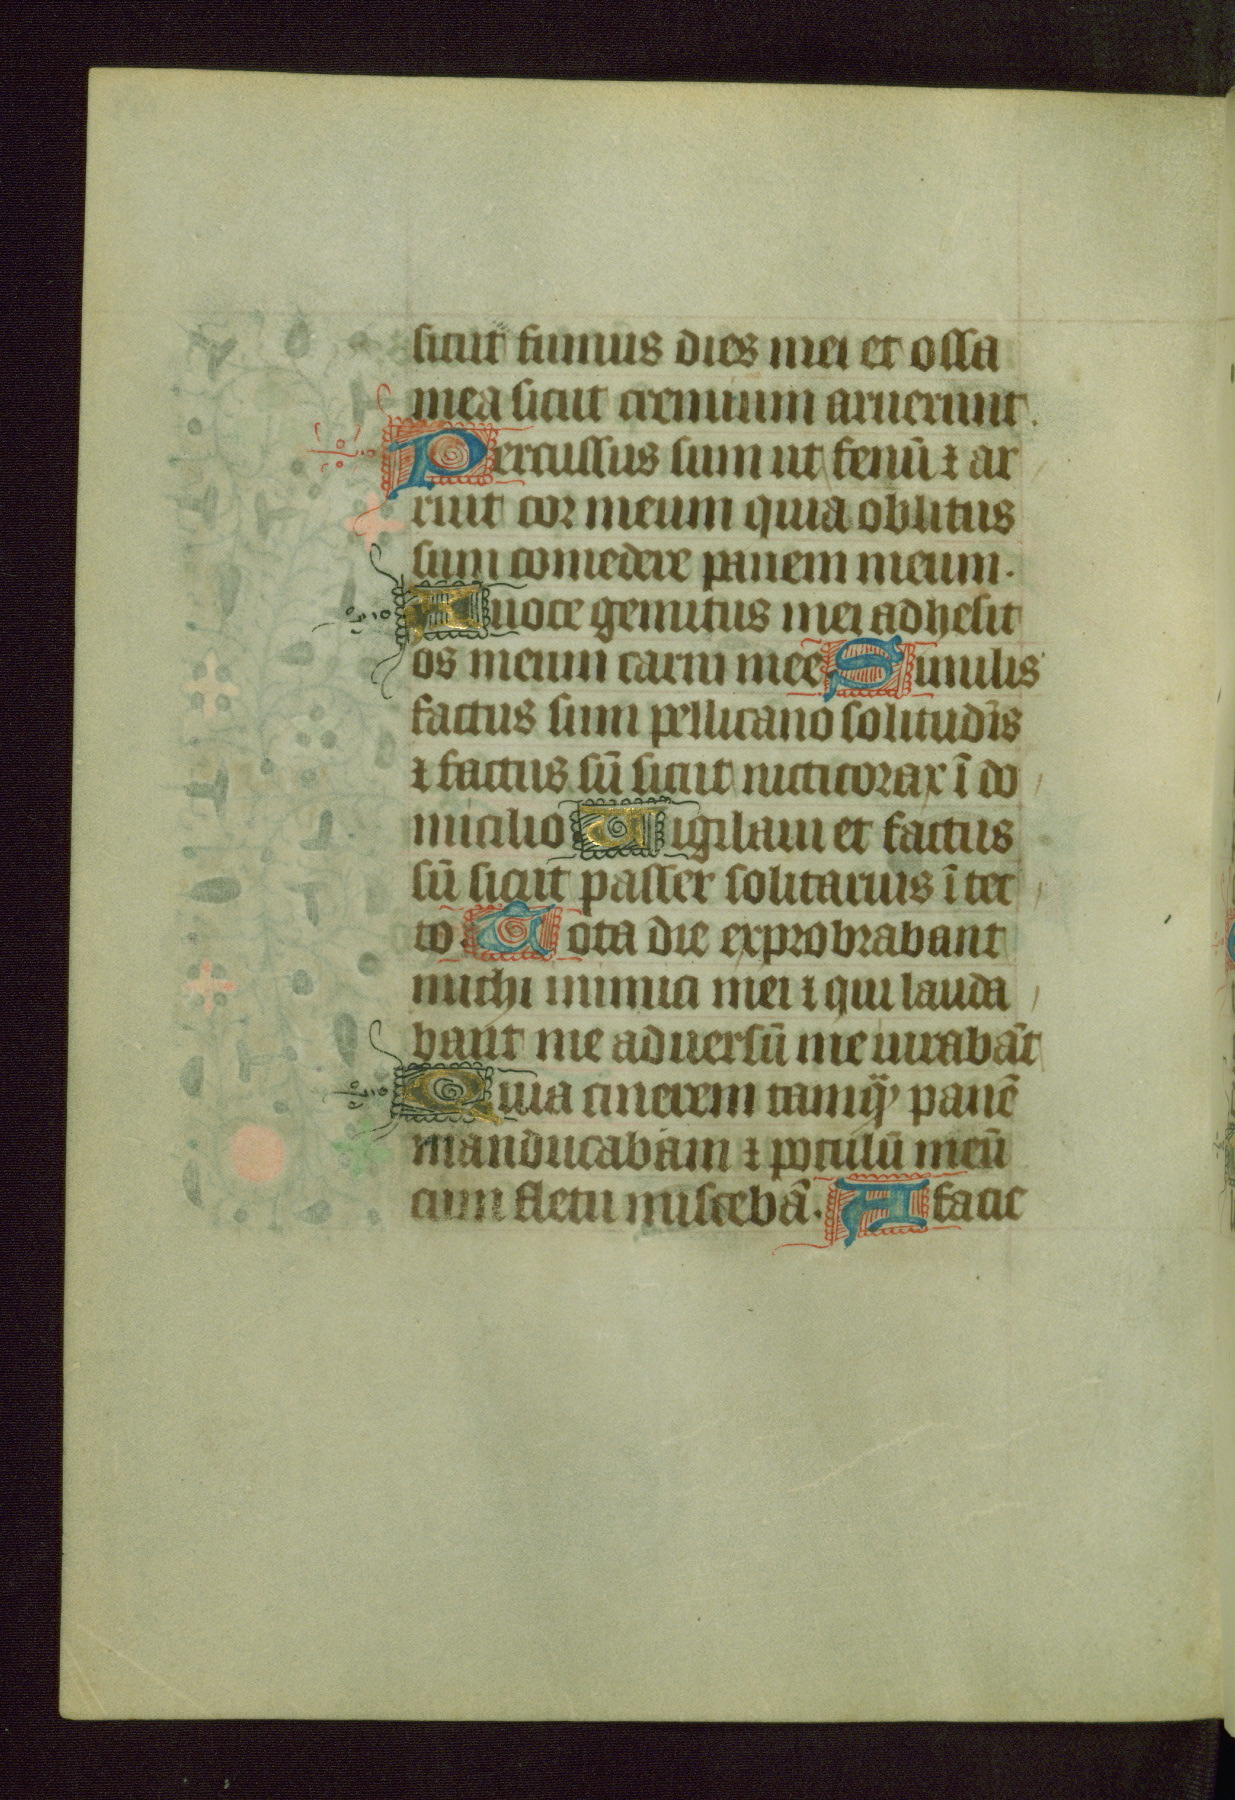 sicut fumus dies mei et ossa
mea sicut cremium aruerunt.
Percussus sum ut fenū ⁊ ar
ruit cor meum quia oblitus
sum comedere panem meum.
A uoce gemitus mei adhesit
os meum carni mee. Similis
factus sum pellicano solitudīs
⁊ factus sū sicut nicticorax ī do
micilio Uigilaui et factus
sū sicut passer solitarius ī tec
to. Tota die exprobrabant
michi inimici mei ⁊ qui lauda
bant me aduersū me iurabāt
Quia cinerem tamq̄ panē
manducabam ⁊ poculū meū
cum fletu miscebā. A facie